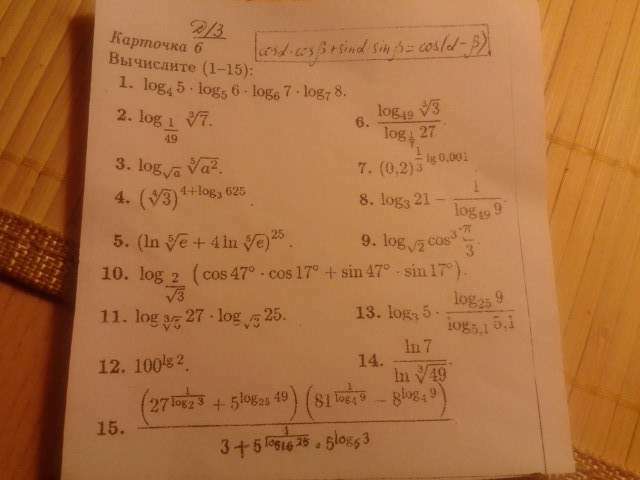 Д/З
cosα·cosβ+sinα·sinβ=cos(α-β)
Карточка 6
Вычислите (1–15):
1. log₄ 5 · log₅ 6 · log₆ 7 · log₇ 8.
2. log_{1/49} ∛7.
6. log₄₉ ∛3 / log_{1/7} 27.
3. log_{√a} ⁵√a².
7. (0,2)^{1/3 lg 0,001}
4. (⁴√3)^{4+log₃ 625}.
8. log₃ 21 − 1/log₄₉ 9.
5. (ln ⁵√e + 4 ln ⁵√e)^{25}.
9. log_{√2} cos³ π/3.
10. log_{2/√3} (cos 47° · cos 17° + sin 47° · sin 17°).
11. log 27 · log 25.
13. log₃ 5 · log₂₅ 9 / log_{5,1} 5,1
12. 100^{lg 2}.
14. ln 7 / ln ∛49.
15. (27^{1/log₂ 3} + 5^{log₂₅ 49}) (81^{1/log₄ 9} − 8^{log₄ 9}) / 3 + 5^{1/log₁₆ 25} · 5^{log₅ 3}